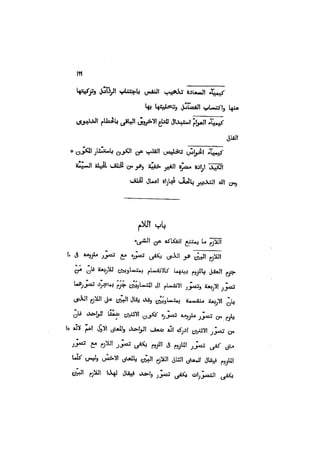 ١٩٩
كيمياء السعادة تهذيب النفس باجتناب الرذائل وتزكيتها
عنها واكتساب الفضائل وتحليتها بها
كيمياء العوام استبدال المتاع الاخروي الباقي بالحطام الدنيوي
الفاني
كيمياء الخواص تخليص القلب عن الكون باستئثار المكون ٥
الكيد ارادة مضرة الغير خفية وهو من الخلف الحيلة السيئة
ومن الله التدبير بالحق لمجازاة اعمال الخلق
باب اللام
اللازم ما يمتنع انفكاكه عن الشيء
اللازم البين هو الذي يكفي تصوره مع تصور ملزومه في ١٠
جزم العقل باللزوم بينهما كالانقسام بمتساويين للاربعة فان من
تصور الاربعة وتصور الانقسام الى المتساويين جزم بمجرد تصورهما
بان الاربعة منقسمة بمتساويين وقد يقال البين على اللازم الذي
يلزم من تصور ملزومه تصوره ككون الاثنين ضعفا للواحد فان
من تصور الاثنين ادرك انه ضعف الواحد والمعنى الاول اعم لانه ١٥
متى كفى تصور الملزوم في اللزوم يكفي تصور اللازم مع تصور
الملزوم فيقال للمعنى الثاني اللازم البين بالمعنى الاخص وليس كلما
يكفي التصورات يكفي تصور واحد فيقال لهذا اللازم البين